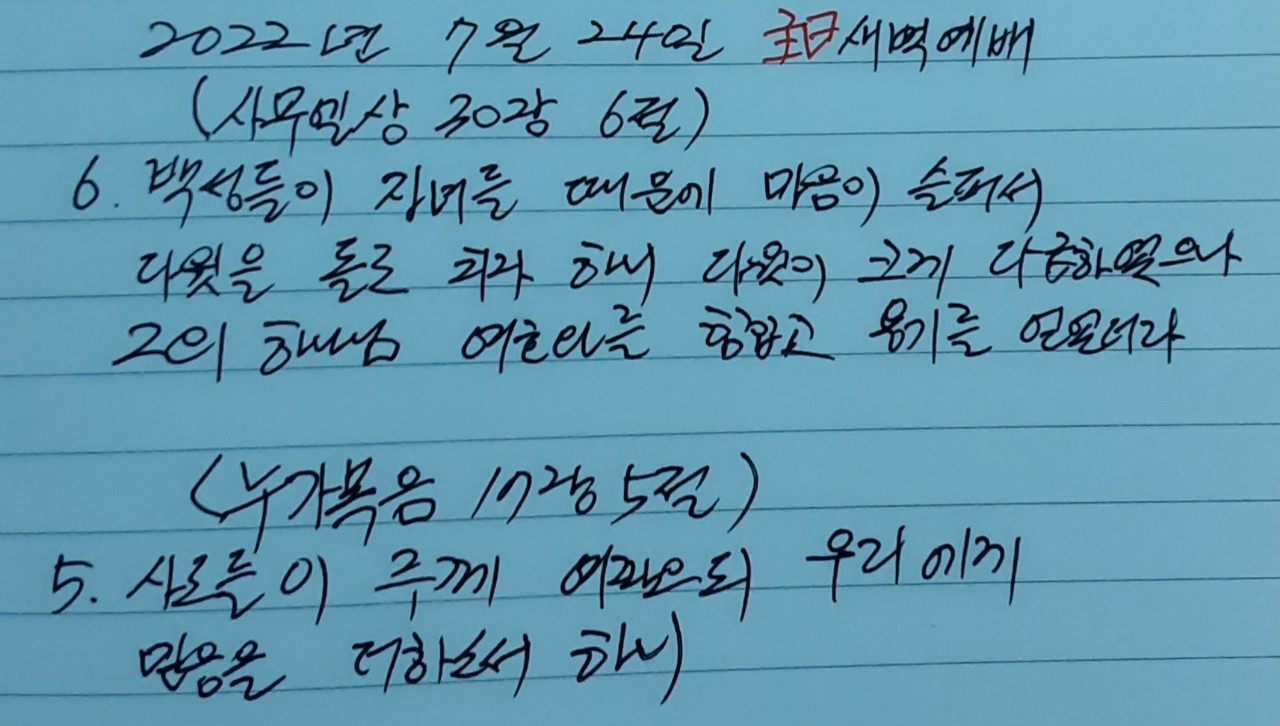 2022년 7월 24일 主日새벽예배
(사무엘상 30장 6절)
6. 백성들이 자녀들 때문에 마음이 슬퍼서
다윗을 돌로 치자 하니 다윗이 크게 다급하였으나
그의 하나님 여호와를 힘입고 용기를 얻었더라
(누가복음 17장 5절)
5. 사도들이 주께 여짜오되 우리에게
믿음을 더하소서 하니